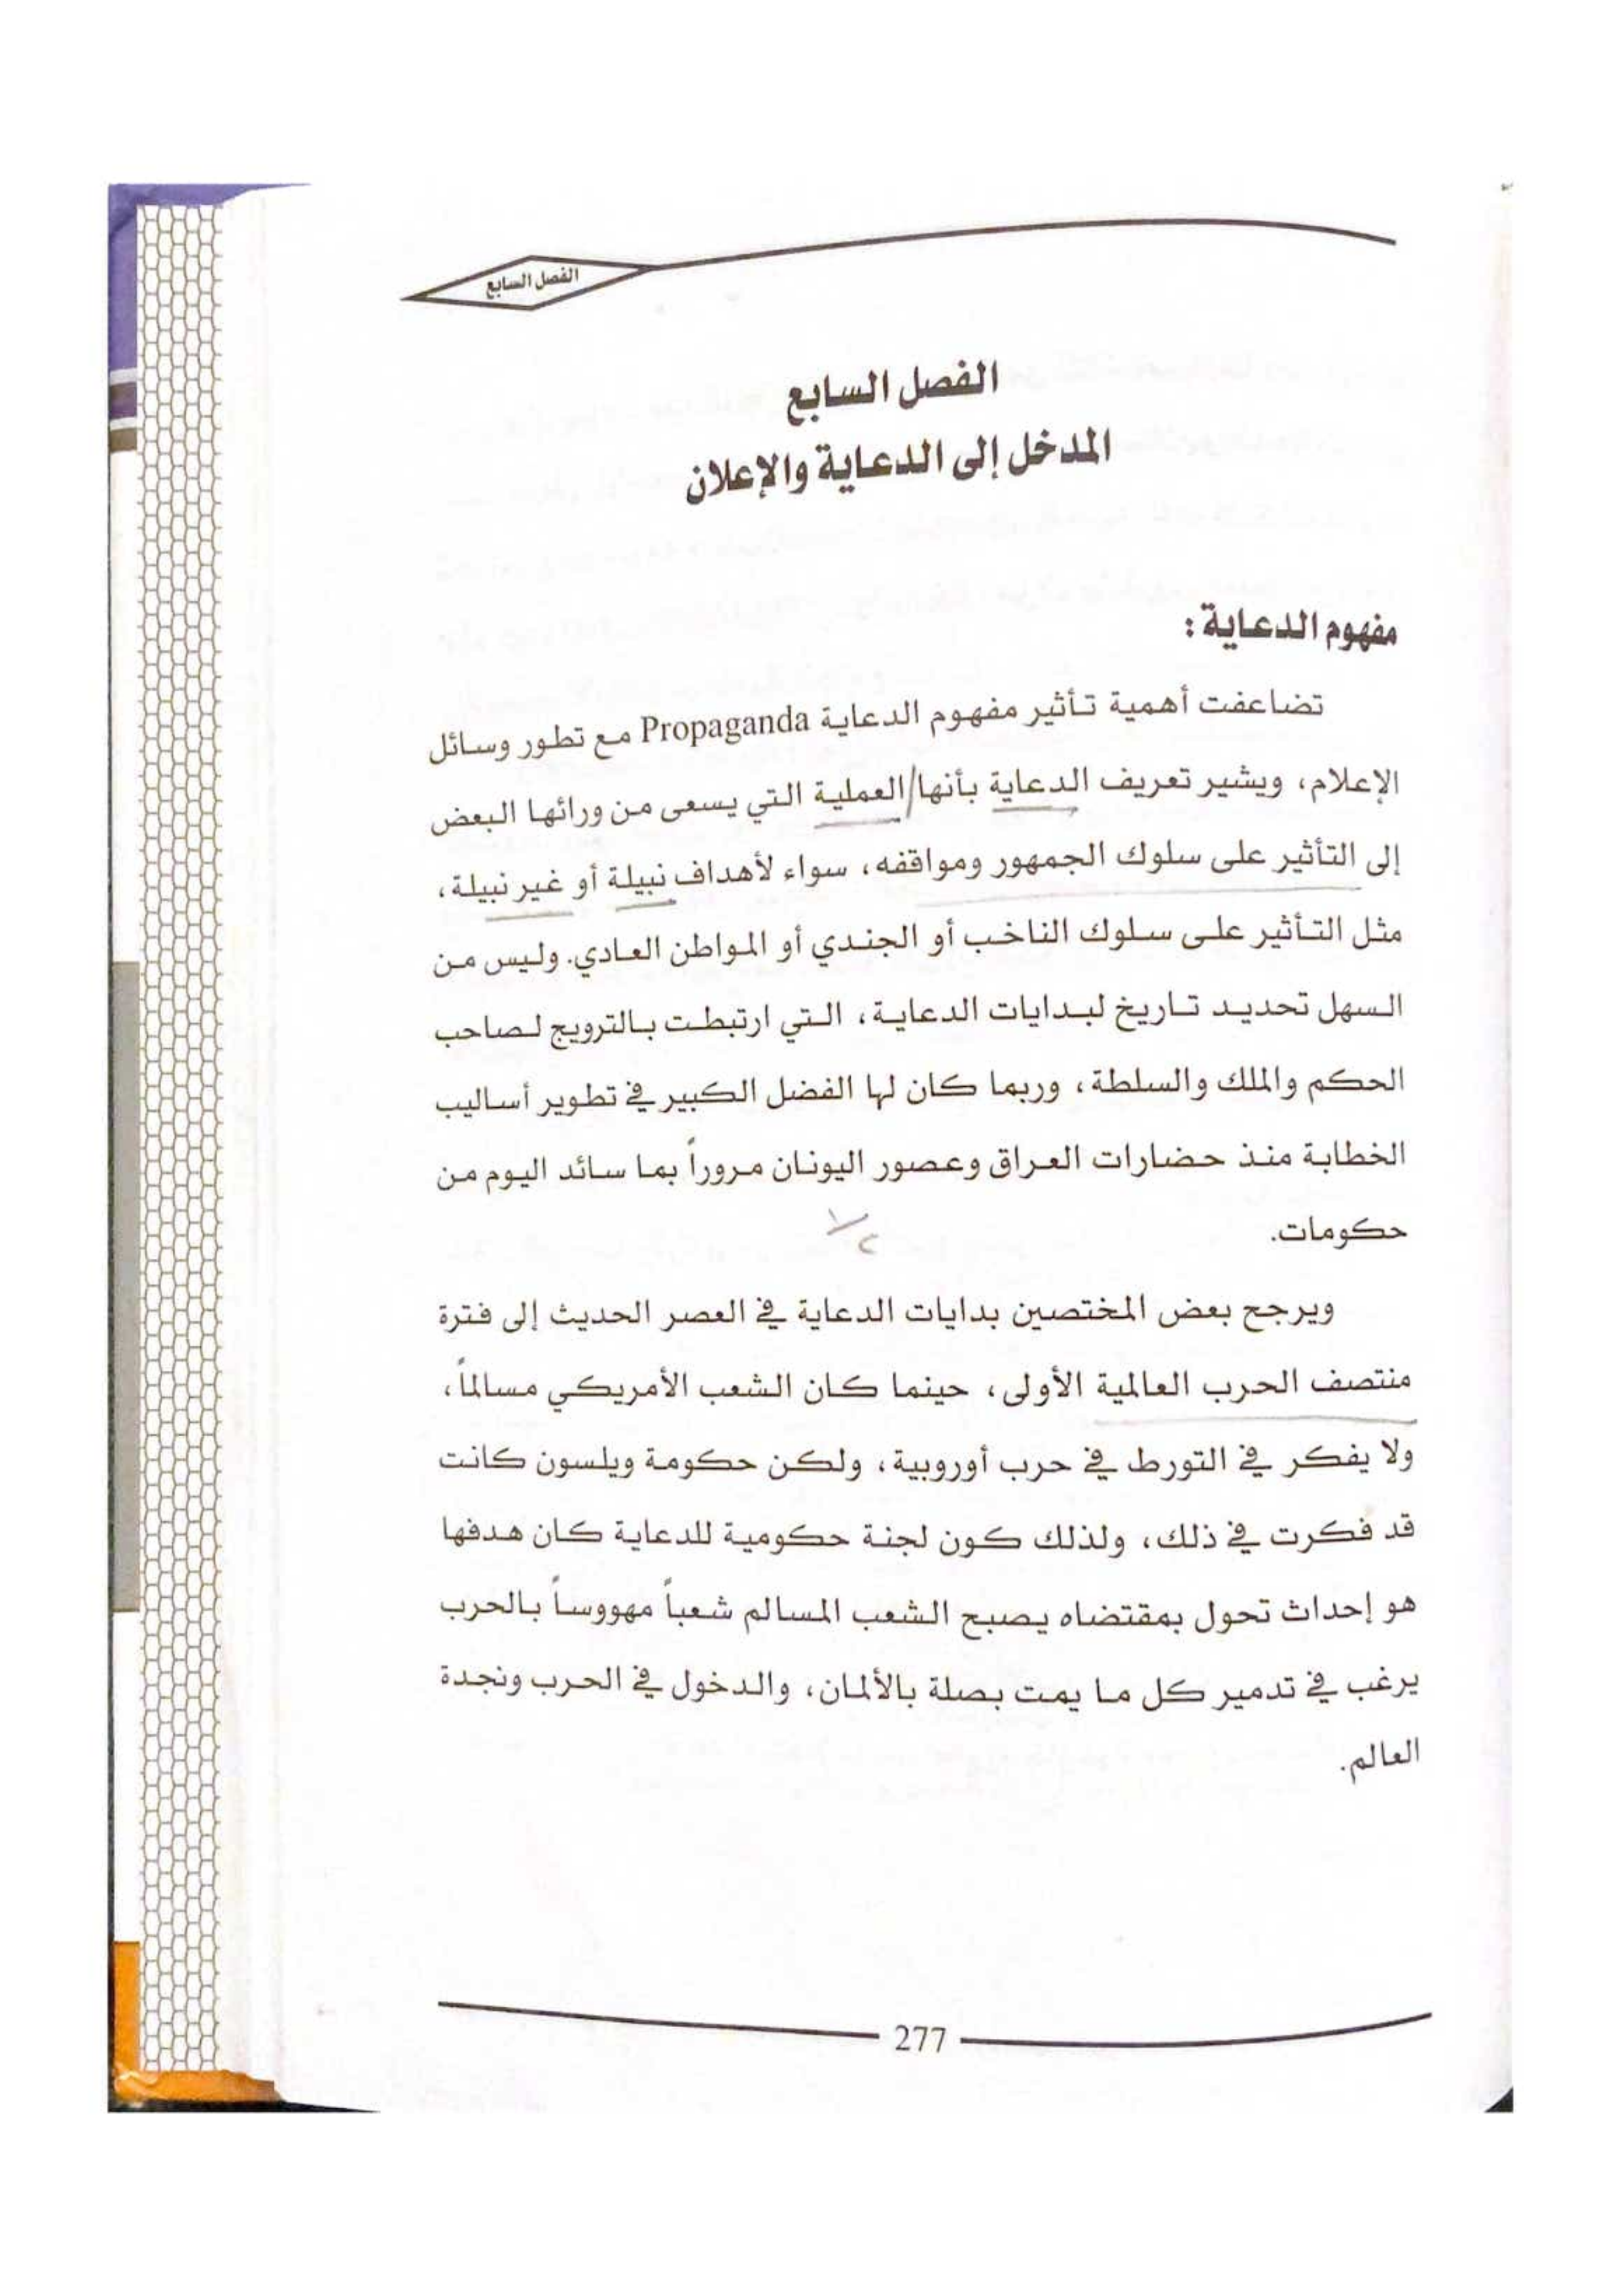 الفصل السابع
الفصل السابع
المدخل إلى الدعاية والإعلان
مفهوم الدعاية :
تضاعفت أهمية تأثير مفهوم الدعاية Propaganda مع تطور وسائل
الإعلام، ويشير تعريف الدعاية بأنها/العملية التي يسعى من ورائها البعض
إلى التأثير على سلوك الجمهور ومواقفه، سواء لأهداف نبيلة أو غير نبيلة،
مثل التأثير على سلوك الناخب أو الجندي أو المواطن العادي. وليس من
السهل تحديد تاريخ لبدايات الدعاية، التي ارتبطت بالترويج لصاحب
الحكم والملك والسلطة، وربما كان لها الفضل الكبير في تطوير أساليب
الخطابة منذ حضارات العراق وعصور اليونان مروراً بما سائد اليوم من
حكومات.
ويرجح بعض المختصين بدايات الدعاية في العصر الحديث إلى فترة
منتصف الحرب العالمية الأولى، حينما كان الشعب الأمريكي مسالماً،
ولا يفكر في التورط في حرب أوروبية، ولكن حكومة ويلسون كانت
قد فكرت في ذلك، ولذلك كون لجنة حكومية للدعاية كان هدفها
هو إحداث تحول بمقتضاه يصبح الشعب المسالم شعباً مهووساً بالحرب
يرغب في تدمير كل ما يمت بصلة بالألمان، والدخول في الحرب ونجدة
العالم.
277